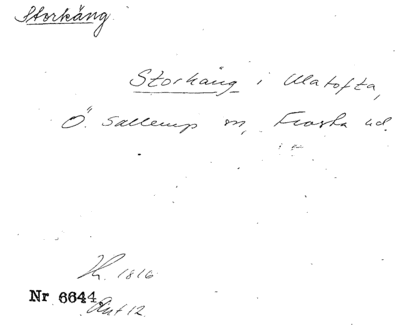 Storkäng
Storkäng i Ulatofta,
Ö. Sallerup sn, Frosta hd.
1816
Nr 6644
Ant 12